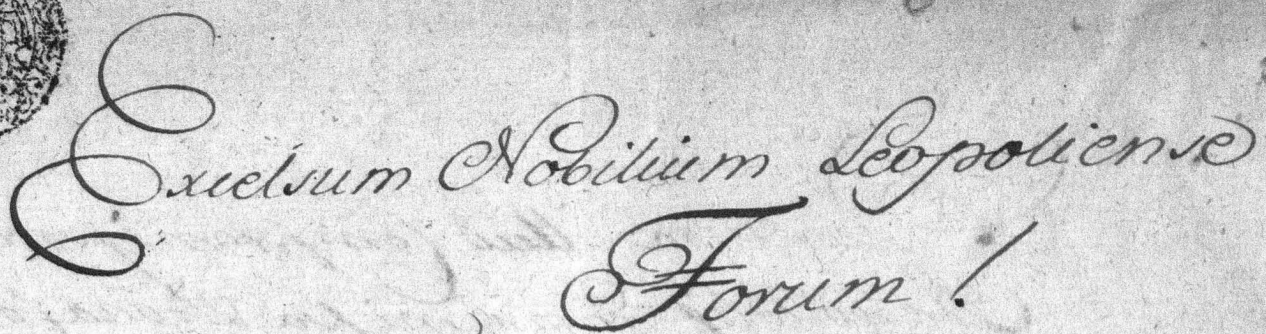 Excelsum Nobilium Leopoliense
Forum!